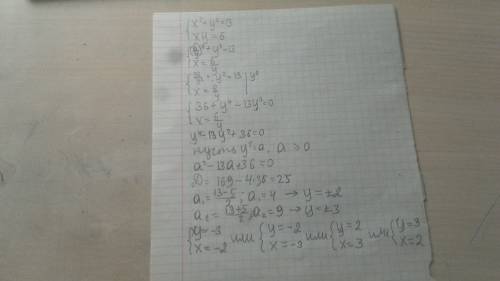 {x²+y²=13
{xy=6
{(6/y)²+y²=13
{x=6/y
{36/y²+y²=13 | y²
{x=6/y
{36+y⁴-13y²=0
{x=6/y
y⁴-13y²+36=0
пусть y²=a, a≥0
a²-13a+36=0
D=169-4·36=25
a₁=(13-5)/2; a₁=4 → y=±2
a₂=(13+5)/2, a₂=9 → y=±3
{y=-3 или {y=-2 или {y=2 или {y=3
{x=-2 {x=-3 {x=3 {x=2